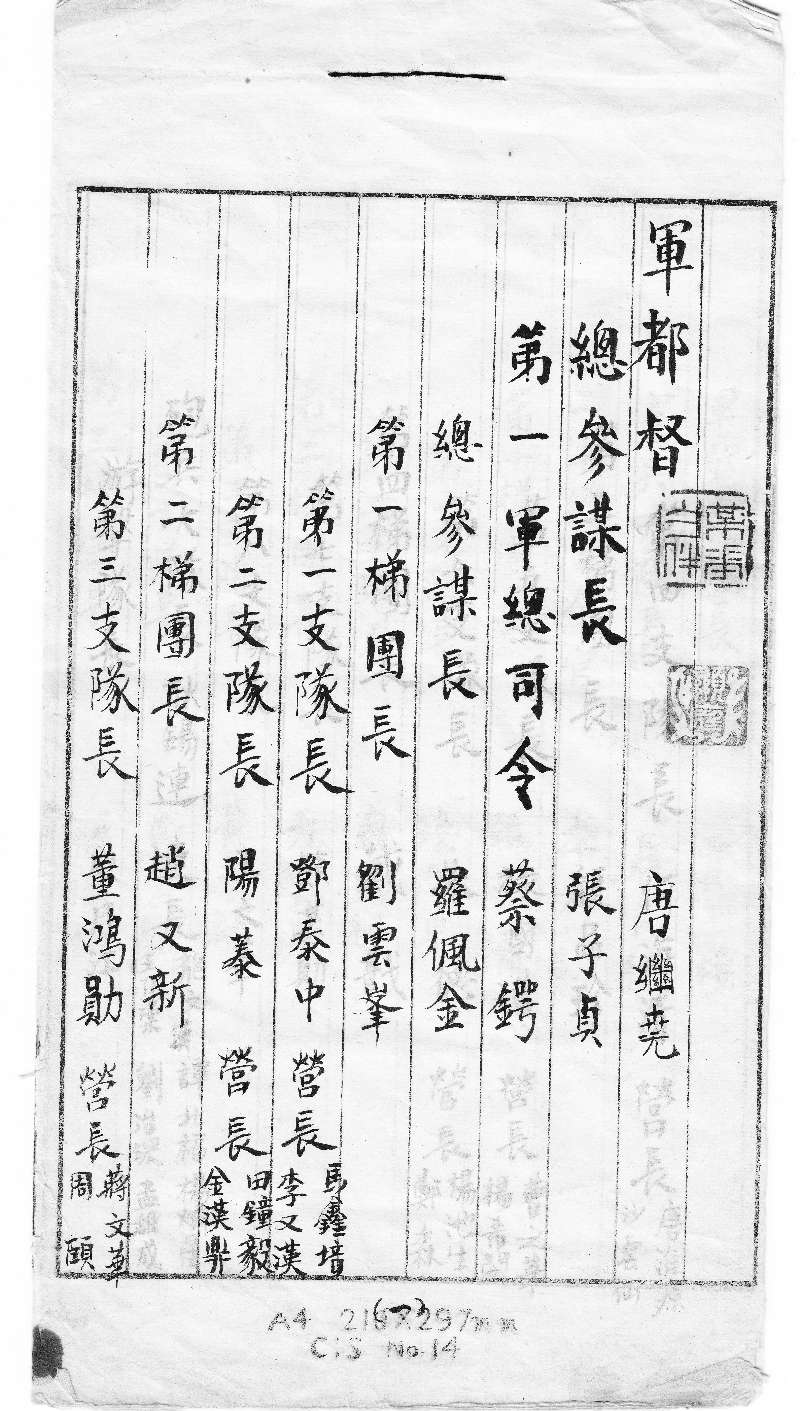 軍都督 唐繼堯
總參謀長 張子貞
第一軍總司令 蔡鍔
總參謀長 羅佩金
第一梯團長 劉雲峯
第一支隊長 鄧泰中 營長 馬鑫培 李文漢
第二支隊長 陽蓁 營長 田鐘毅 金漢鼎
第二梯團長 趙又新
第三支隊長 董鴻勛 營長 蔣文華 周頤
A4 210×297mm
CiS No.14